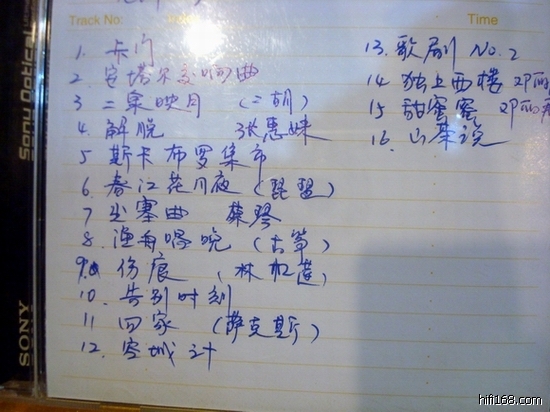 Track No:
Time
1. 卡门
2 安塔尔交响曲
3 二泉映月 (二胡)
4. 解脱 张惠妹
5 斯卡布罗集市
6. 春江花月夜 (琵琶)
7 出塞曲 蔡琴
8. 渔舟唱晚 (古筝)
9. 伤痕 (林忆莲)
10. 告别时刻
11 回家 (萨克斯)
12. 空城计
13. 歌剧 No. 2
14 独上西楼 邓丽
15 甜蜜蜜 邓丽君
16. 山茶
Sony Optical
SONY
hifi168.com